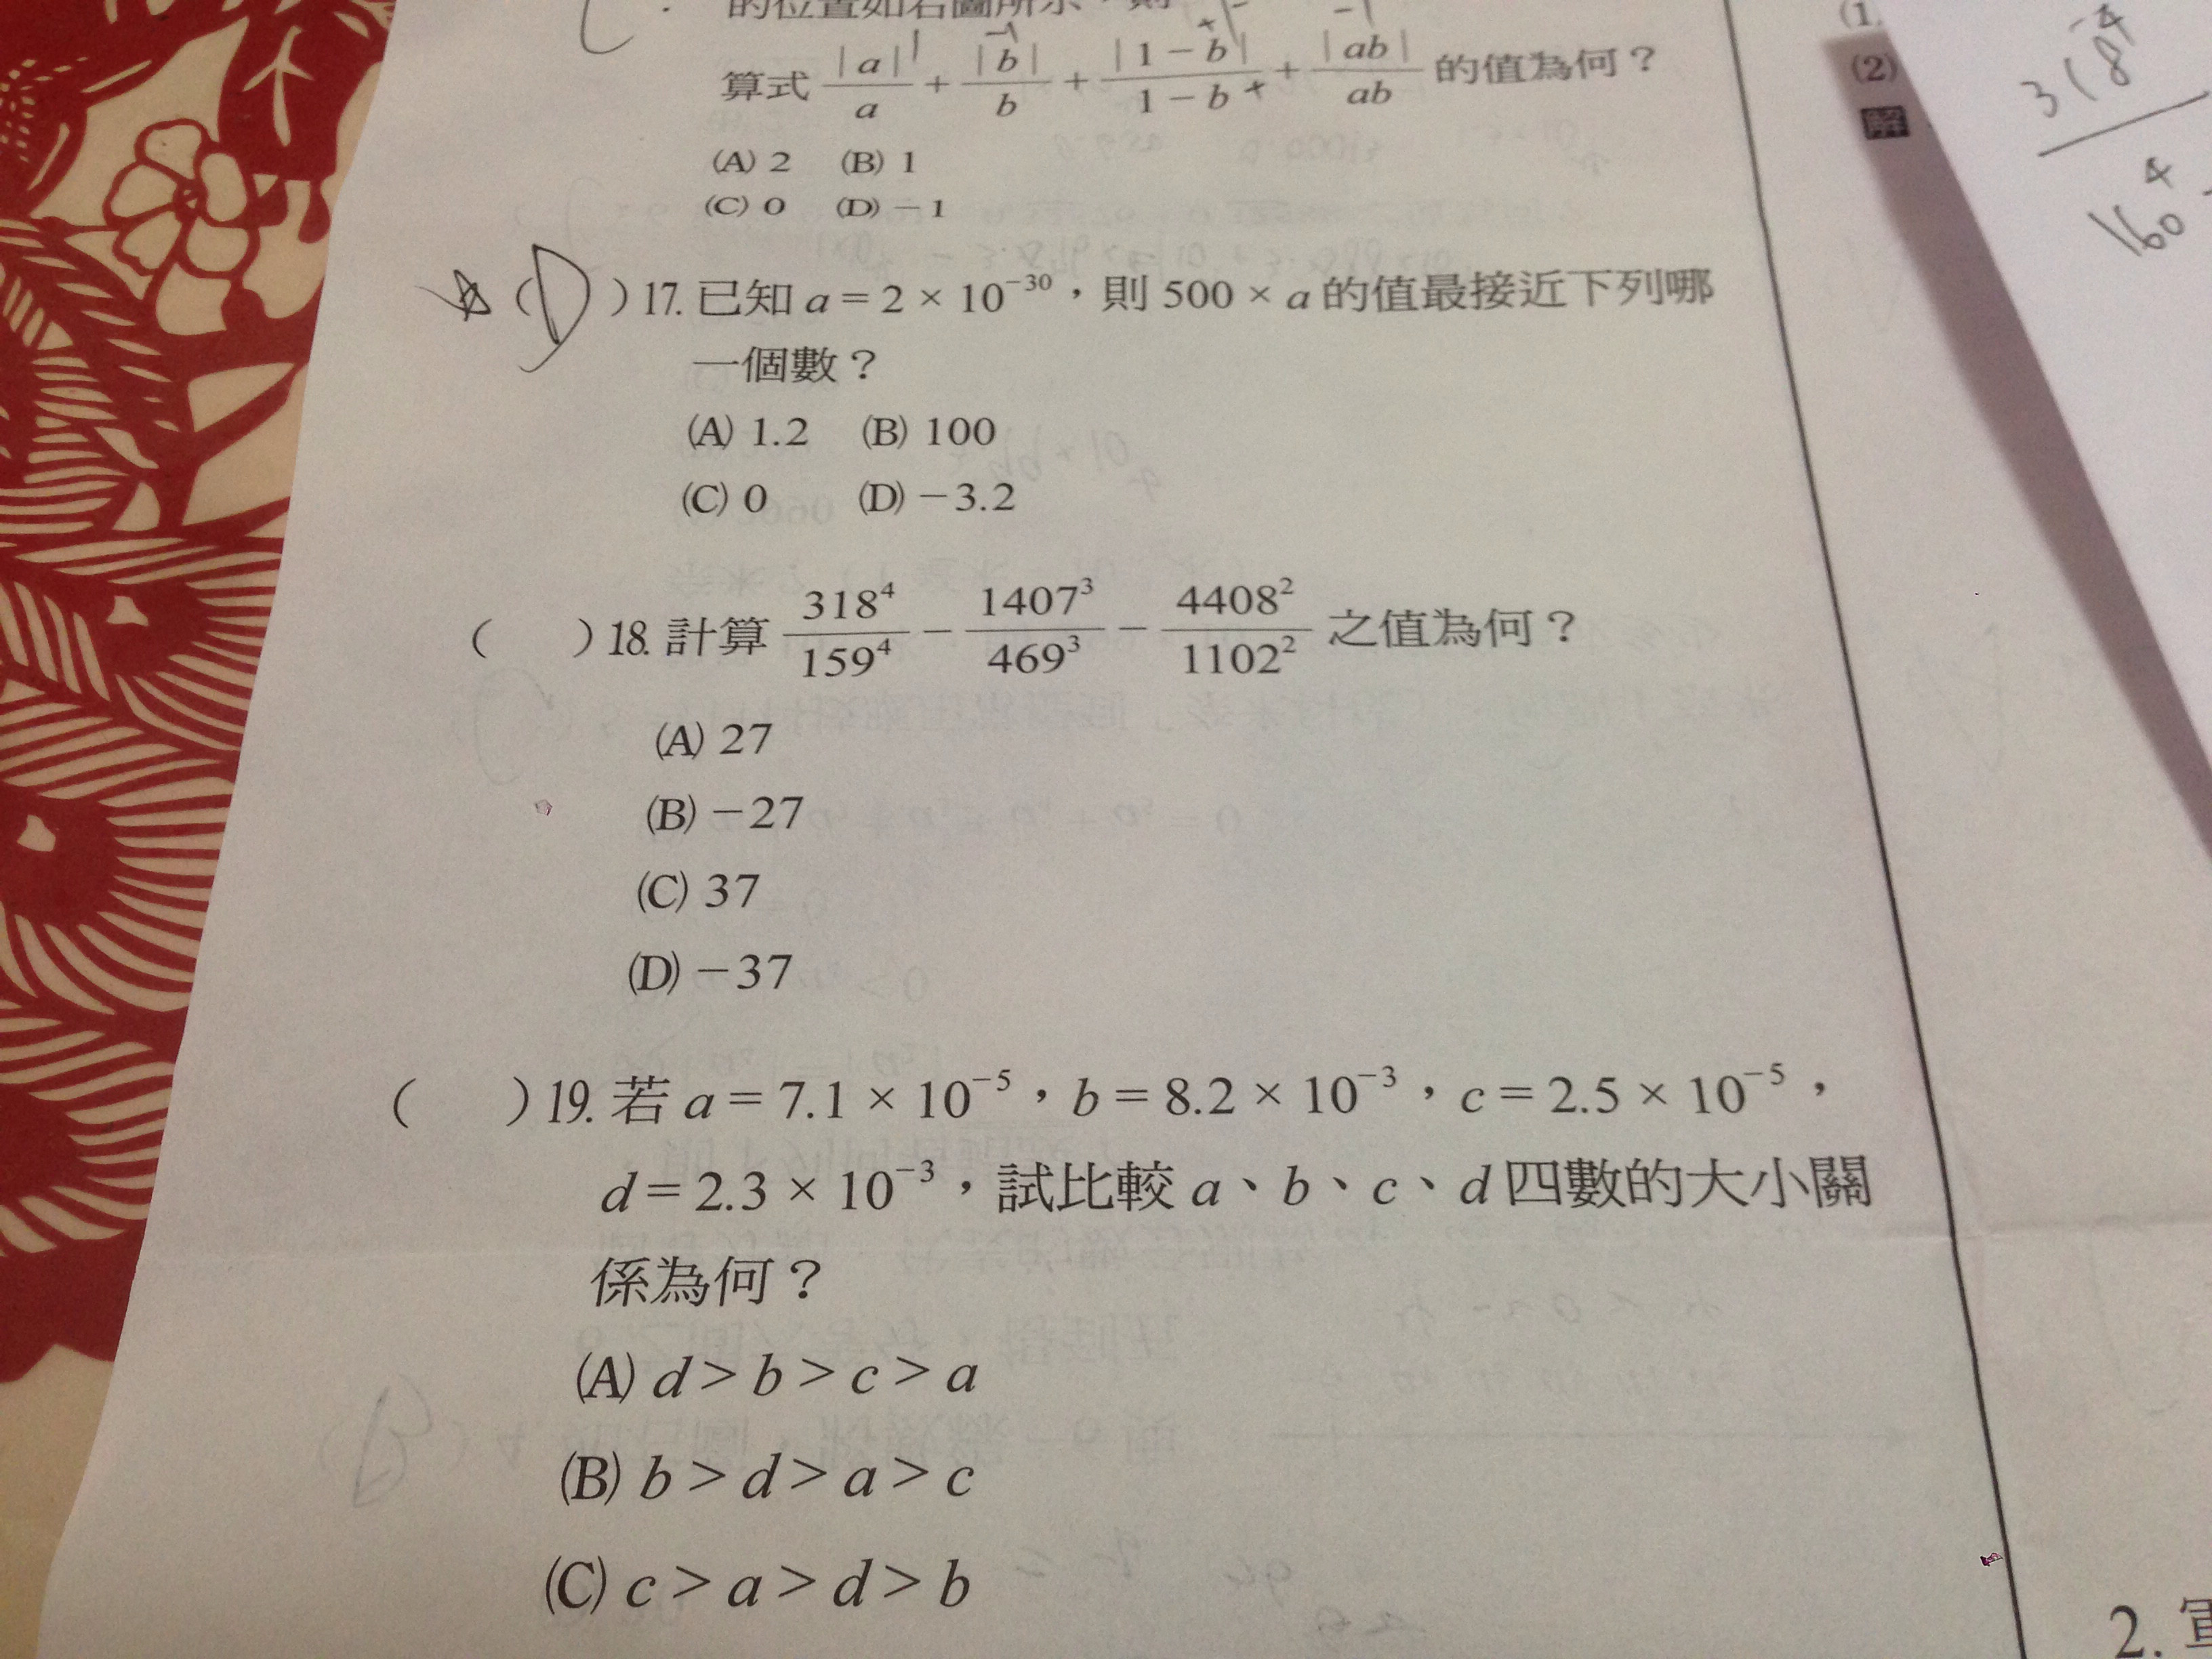 的位置如右圖所示，則
算式 |a|/a + |b|/b + |1－b|/1－b + |ab|/ab 的值為何？
1 －1 + －1
(A) 2 (B) 1
(C) 0 (D) －1
(D) 17. 已知 a = 2 × 10⁻³⁰，則 500 × a 的值最接近下列哪
一個數？
(A) 1.2 (B) 100
(C) 0 (D) －3.2
( ) 18. 計算 318⁴/159⁴ － 1407³/469³ － 4408²/1102² 之值為何？
(A) 27
(B) －27
(C) 37
(D) －37
( ) 19. 若 a = 7.1 × 10⁻⁵，b = 8.2 × 10⁻³，c = 2.5 × 10⁻⁵，
d = 2.3 × 10⁻³，試比較 a、b、c、d 四數的大小關
係為何？
(A) d > b > c > a
(B) b > d > a > c
(C) c > a > d > b
(1)
(2)
解
318⁴
160⁴
2.